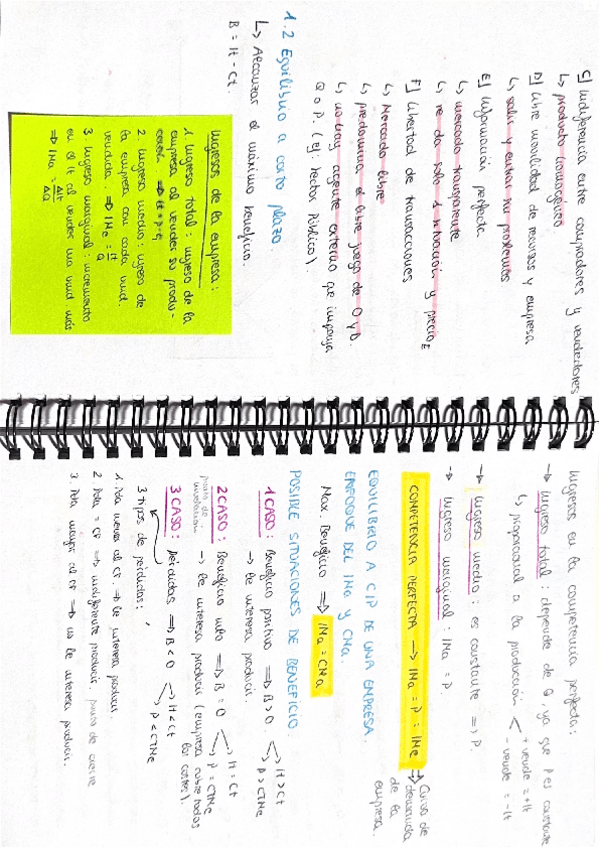 C] Indiferencia entre compradores y vendedores
↳ producto homogéneo
D] Libre movilidad de recursos y empresa
↳ salir y entrar sin problemas
E] Información perfecta
↳ mercado transparente
↳ se da solo 1 situación y precio E
F] Libertad de transacciones
↳ Mercado libre
↳ predomina el libre juego de O y D.
↳ no hay agente externo que imponga
Q o P. (ej: sector Público).
1.2 Equilibrio a corto plazo.
↳ Alcanzar el máximo beneficio.
B = It - Ct.
Ingresos de la empresa:
1. Ingreso total: ingreso de la
empresa al vender su produ-
cción ⇒ It = P · Q
2. Ingreso medio: ingreso de
la empresa con cada unid.
vendida. ⇒ IMe = It/Q
3. Ingreso marginal: incremento
en el It al vender una unid más
⇒ IMa = ΔIt/ΔQ
Ingresos en la competencia perfecta:
→ Ingreso total: depende de Q, ya que P es constante
↳ proporcional a la producción < + vende = +It
- vende = -It
→ Ingreso medio: es constante ⇒ P.
→ Ingreso marginal: IMa = P.
COMPETENCIA PERFECTA → IMa = P = IMe → Curva de
demanda
de la
empresa.
EQUILIBRIO A C/P DE UNA EMPRESA.
ENFOQUE DEL IMa y CMa.
Max. Beneficio ⇒ IMa = CMa
POSIBLE SITUACIONES DE BENEFICIO.
1 CASO: Beneficio positivo ⇒ B > 0. < It > Ct
P > CTMe
→ le interesa producir
2 CASO: Beneficio nulo ⇒ B = 0 < It = Ct
P = CTMe
punto de
nivelación
→ le interesa producir (empresa cubre todos
los costes).
3 CASO: pérdidas ⇒ B < 0 < It < Ct
P < CTMe
3 tipos de pérdidas:
1. Pdta menor al CF. ⇒ le interesa producir
2. Pdta = CF ⇒ indiferente producir. punto de cierre
3. Pdta mayor al CF ⇒ no le interesa producir.